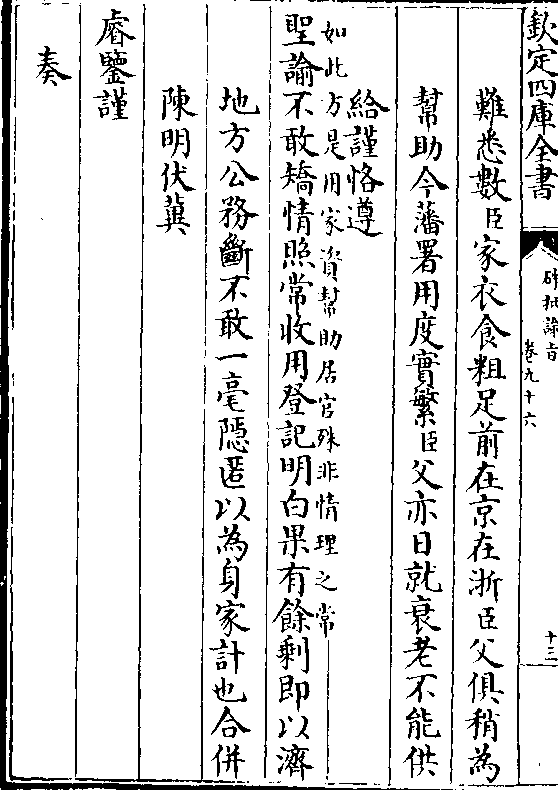 欽定四庫全書
硃批諭旨
卷九十六
十三
難悉數臣家衣食粗足前在京在浙臣父俱稍為
幫助今藩署用度實繁臣父亦日就衰老不能供
給謹恪遵
如此方是用家資幫助居官殊非情理之常
聖諭不敢矯情照常收用登記明白果有餘剩即以濟
地方公務斷不敢一毫隱匿以為身家計也合併
陳明伏冀
睿鑒謹
奏